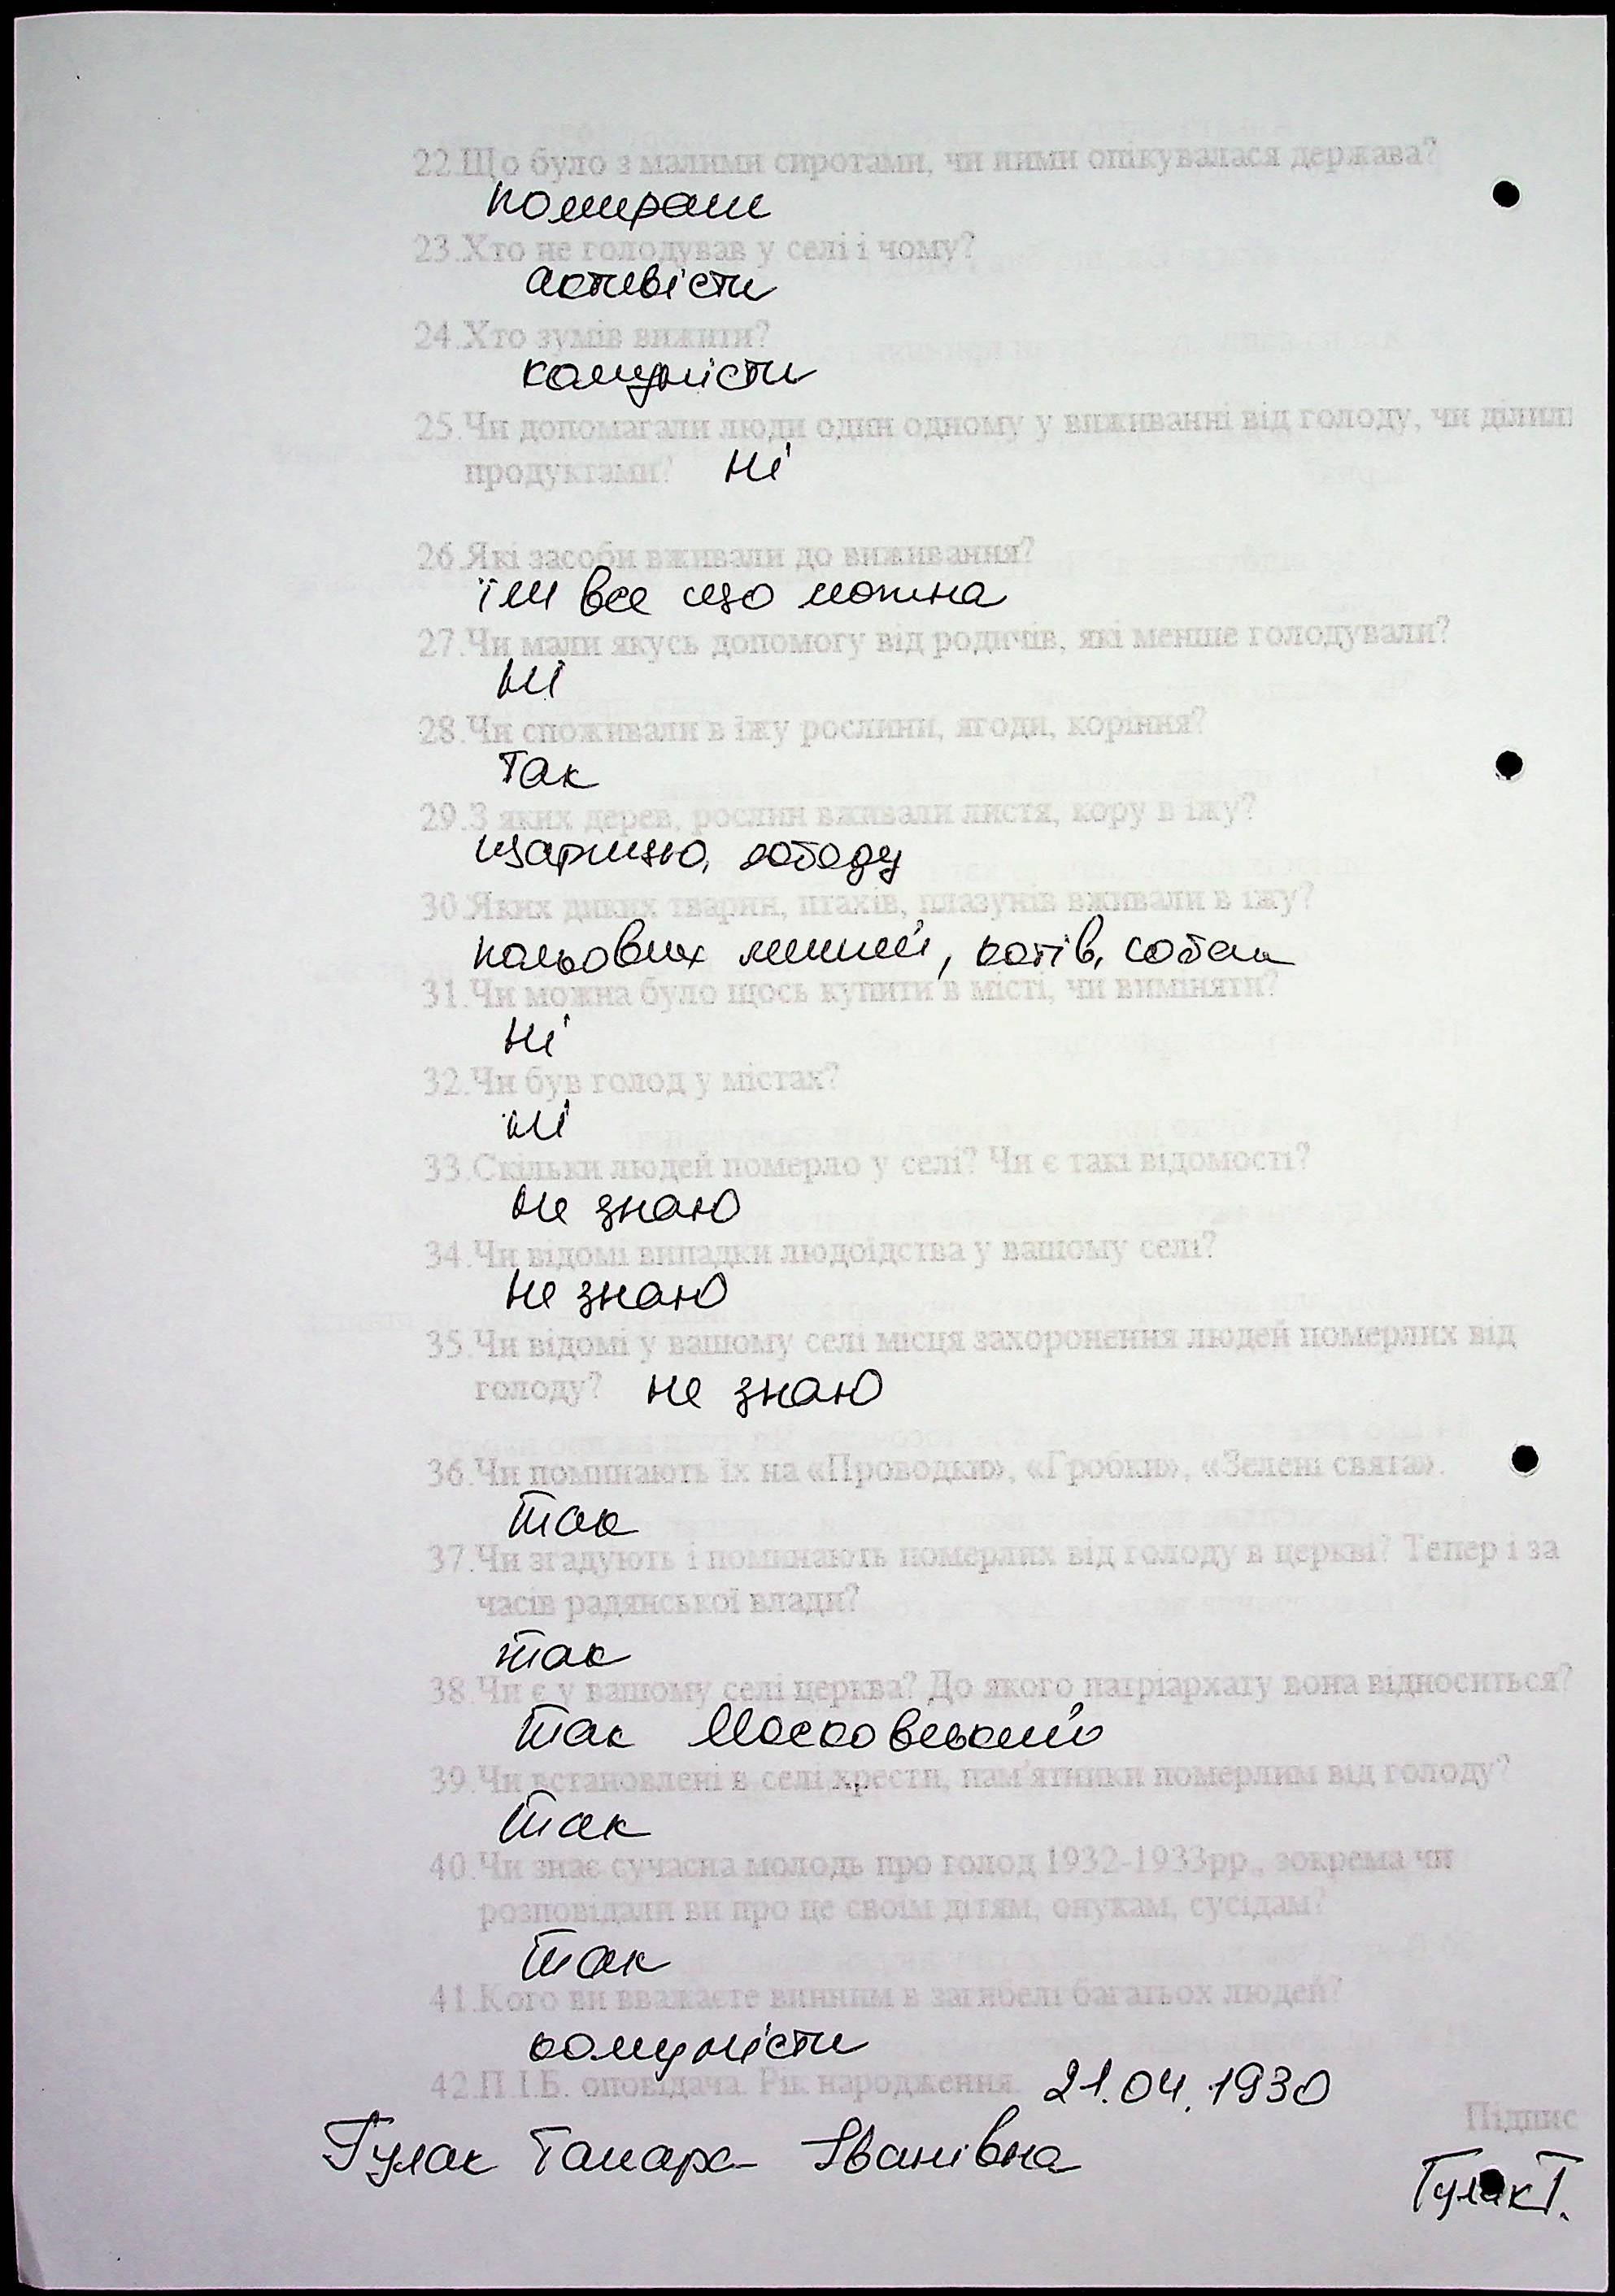 22.Що було з малими сиротами, чи ними опікувалася держава?
помирали
23.Хто не голодував у селі і чому?
активісти
24.Хто зумів вижити?
комуністи
25.Чи допомагали люди один одному у виживанні від голоду, чи ділили
продуктами? Ні
26.Які засоби вживали до виживання?
їли все що можна
27.Чи мали якусь допомогу від родичів, які менше голодували?
Ні
28.Чи споживали в їжу рослини, ягоди, коріння?
Так
29.З яких дерев, рослин вживали листя, кору в їжу?
щарицю, лободу
30.Яких диких тварин, птахів, плазунів вживали в їжу?
польових мишей, котів, собак
31.Чи можна було щось купити в місті, чи виміняти?
Ні
32.Чи був голод у містах?
Ні
33.Скільки людей померло у селі? Чи є такі відомості?
Не знаю
34.Чи відомі випадки людоїдства у вашому селі?
Не знаю
35.Чи відомі у вашому селі місця захоронення людей померлих від
голоду? не знаю
36.Чи поминають їх на «Проводки», «Гробки», «Зелені свята».
Так
37.Чи згадують і поминають померлих від голоду в церкві? Тепер і за
часів радянської влади?
так
38.Чи є у вашому селі церква? До якого патріархату вона відноситься?
Так Московський
39.Чи встановлені в селі хрести, пам'ятники померлим від голоду?
Так
40.Чи знає сучасна молодь про голод 1932-1933рр., зокрема чи
розповідали ви про це своїм дітям, онукам, сусідам?
Так
41.Кого ви вважаєте винним в загибелі багатьох людей?
комуністи
42.П.І.Б. оповідача. Рік народження. 21.04.1930
Підпис
Гулак Тамара Іванівна
Гулак Т.